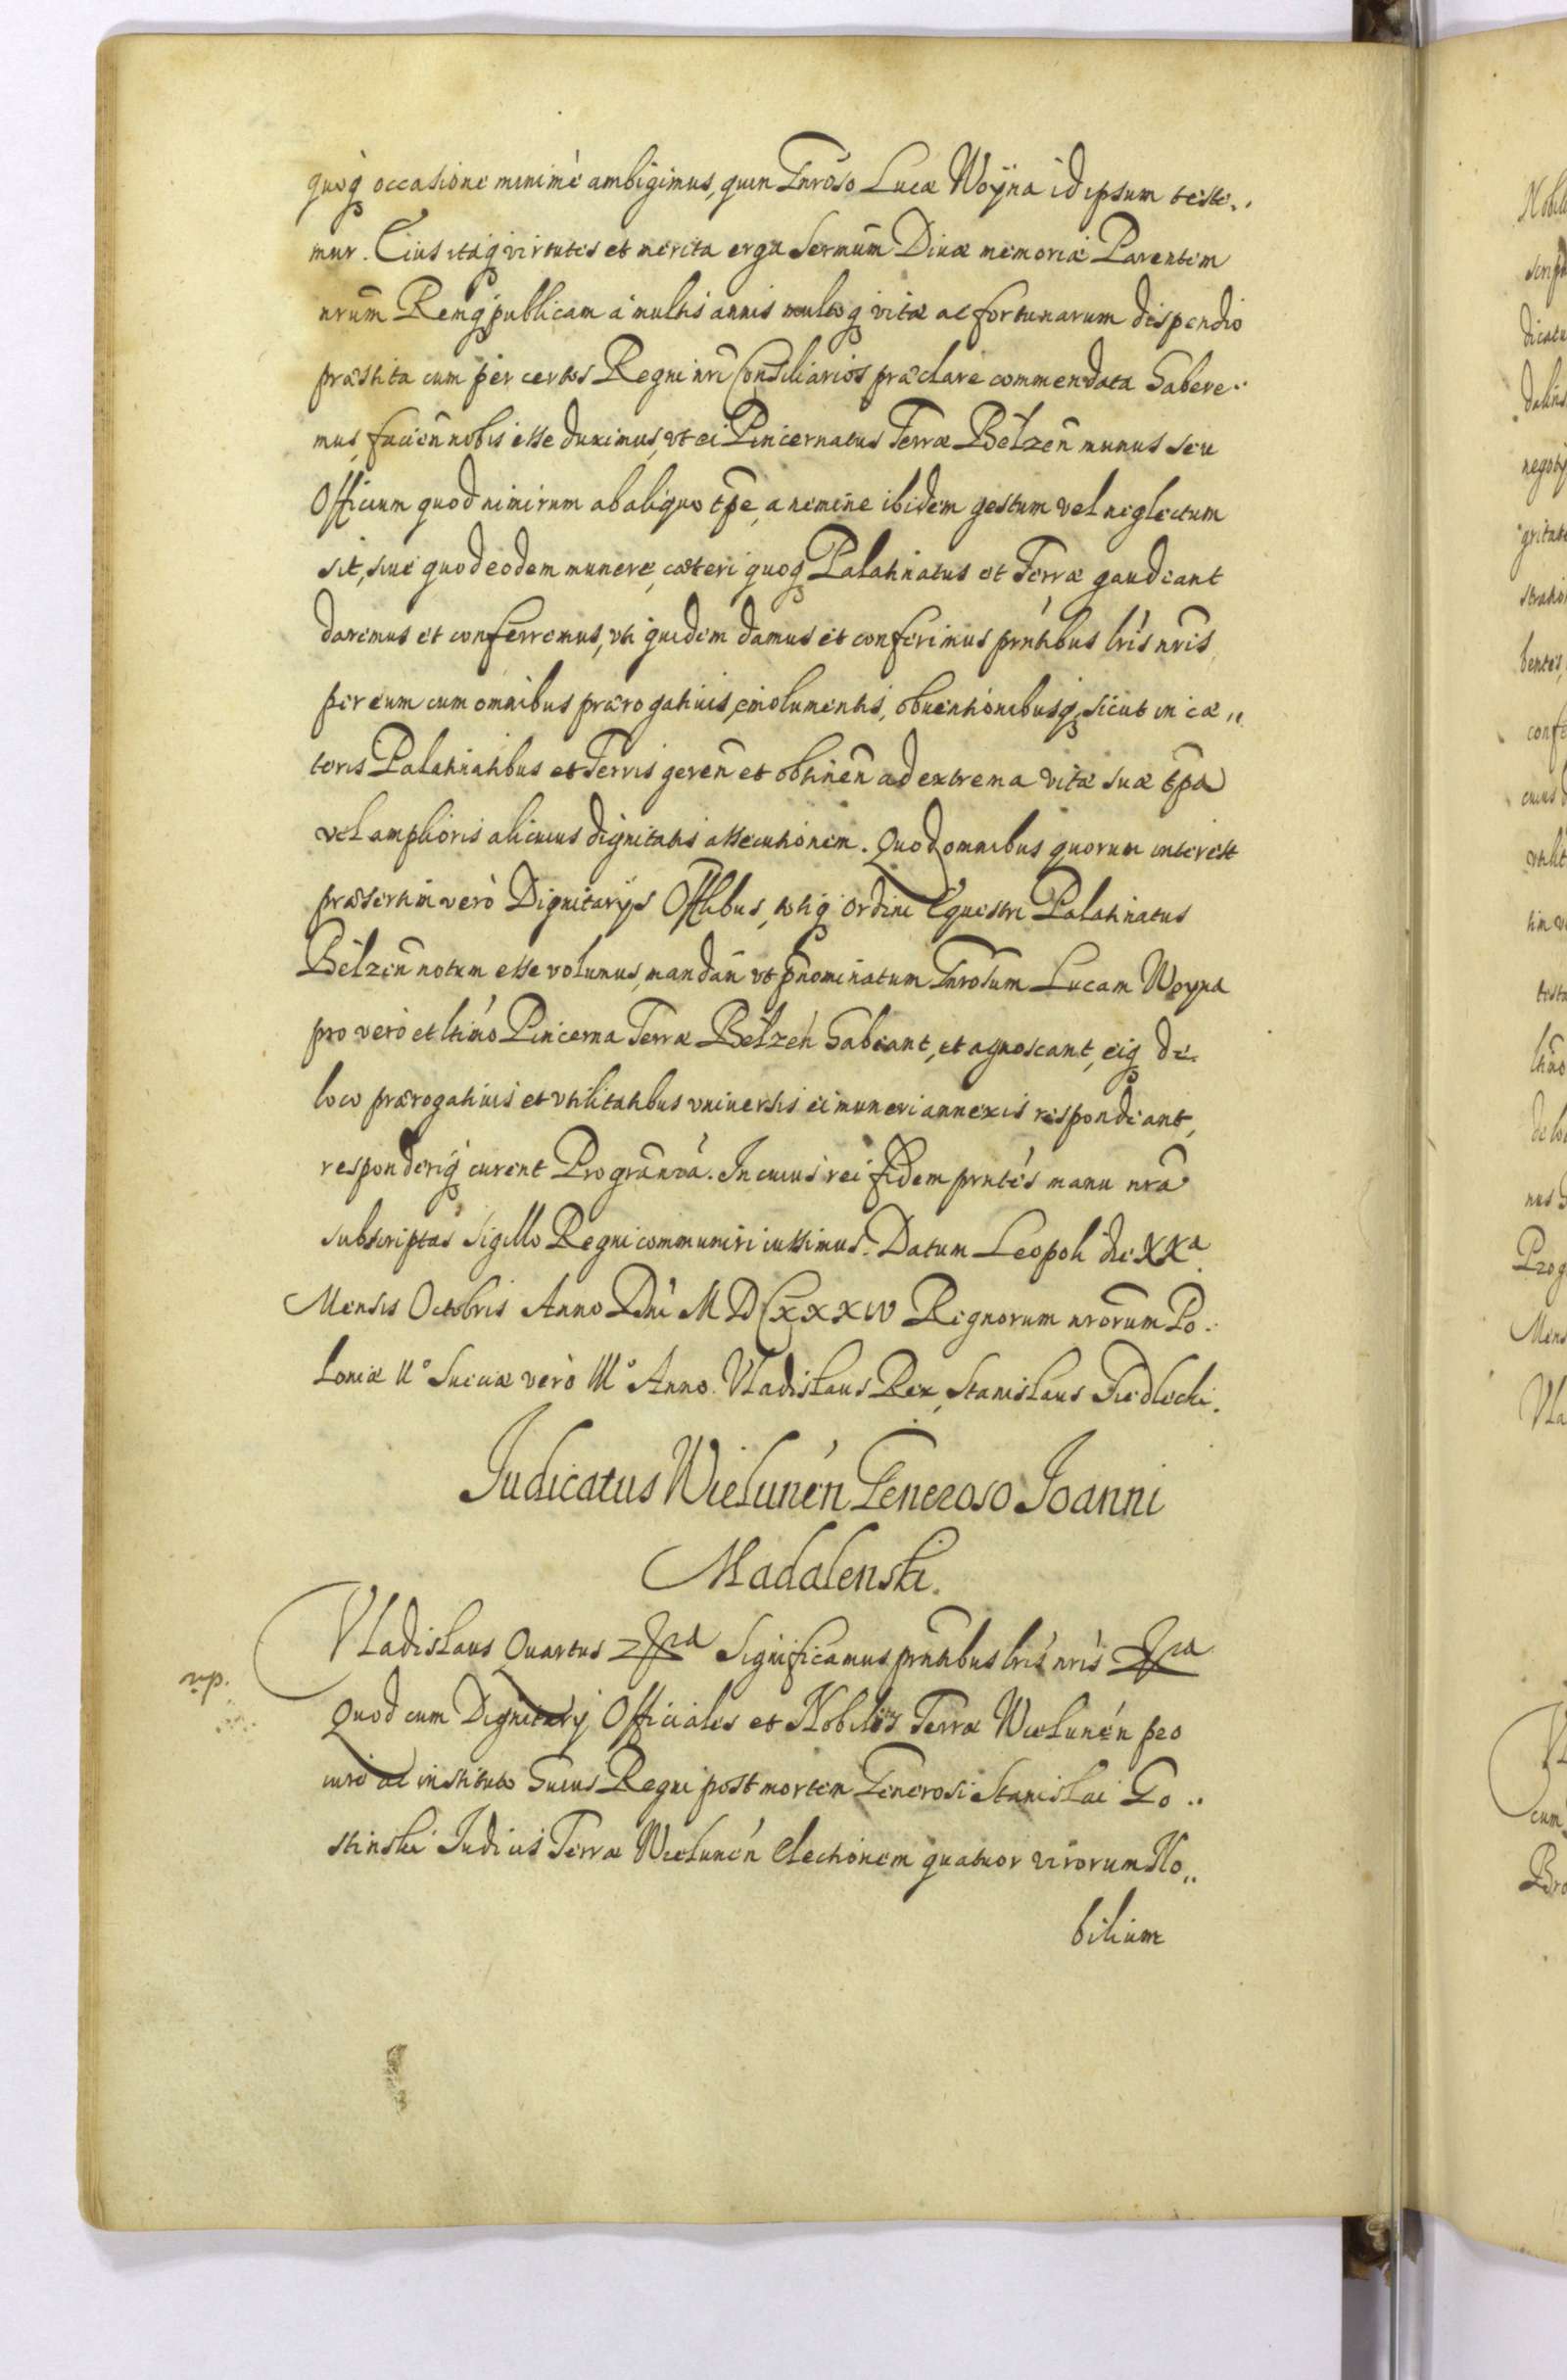 quoq̃ occasione minimè ambigimus, quin Gnroso Lucæ Woyna id ipsum teste„
mur. Eius itaq̃ virtutes et merita erga Sermũm Diuæ memoriæ Parentem
nrũm Remq̃ publicam á multis annis multoq̃ vitæ ac fortunarum dispendio
præstita cum per certos Regni nrĩ Consiliarios præclare commendata habere„
mus, facieñ nobis esse duximus, vt ei Pincernatus Terræ Belzeñ munus seu
Officium quod nimirum ab aliquo tp̃e, a nemine ibidem gestum vel neglectum
sit, siue quod eodem munere, cæteri quoq̃ Palatinatus et Terræ gaudeant
daremus et conferremus, vti quidem damus et conferimus prñtibus lrĩs nrĩs
per eum cum omnibus prærogatiuis, emolumentis, obuentionibusq̃, sicut in cæ„
teris Palatinatibus et Terris gereñ et obtineñ ad extrema vitæ suæ tp̃a
vel amplioris alicuius dignitatis assecutionem. Quod omnibus quorum interest
præsertim verò Dignitarijs Offlibus, totiq̃ Ordini Equestri Palatinatus
Belzeñ notum esse volumus, mandañ vt p̃nominatum Gnrosum Lucam Woyna
pro vero et ltimo Pincerna Terræ Belzeń habeant, et agnoscant, eiq̃ de
loco prærogatiuis et vtilitatibus vniuersis ei muneri annexis respondeant,
responderiq̃ curent Pro grãnrá. In cuius rei fidem prntés manu nrã
subscriptas Sigillo Regni communiri iussimus. Datum Leopoli die XXª
Mensis Octobris Anno Dnĩ M D C XXXIV Regnorum nrorũm Po„
loniæ II° Sueciæ verò III° Anno. Vladislaus Rex, Stanislaus Siedlecki.
Judicatus Wieluneń Generoso Joanni
Madalenski.
Vladislaus Quartus Significamus prñtibus lrĩs nrĩs
Quod cum Dignitarij Officiales et Nobiles Terræ Wieluneń pro
iure ac instituto huius Regni post mortem Generosi Stanislai Go„
stinski Judicis Terræ Wieluneń electionem quatuor virorum No„
bilium